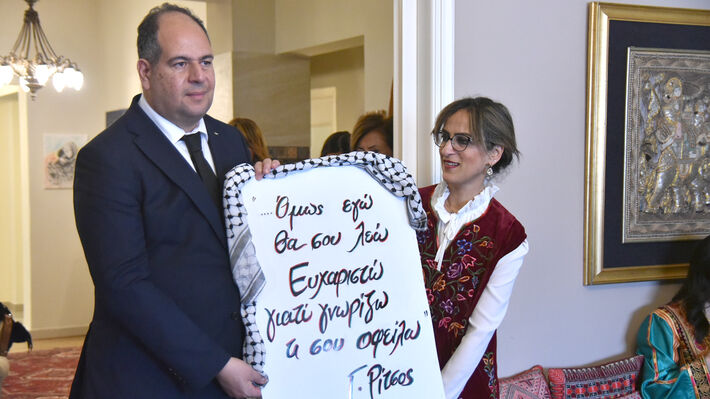 "....Όμως εγώ
θα σου λέω
Ευχαριστώ
γιατί γνωρίζω
τι σου οφείλω"
Γ. Ρίτσος